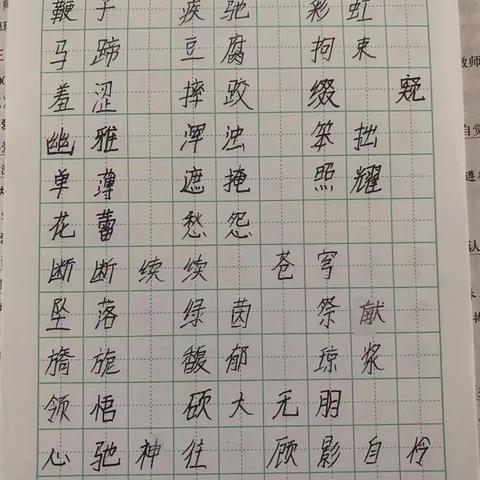 鞭子 疾驰 彩虹
马蹄 豆腐 拘束
教师
羞涩 摔跤 缀 窥
幽雅 浑浊 笨拙
自觉
单薄 遮掩 照耀
花蕾 愁怨
断断续续 苍穹
坠落 绿茵 祭献
旖旎 馥郁 琼浆
领悟 硕大无朋
心驰神往 顾影自怜